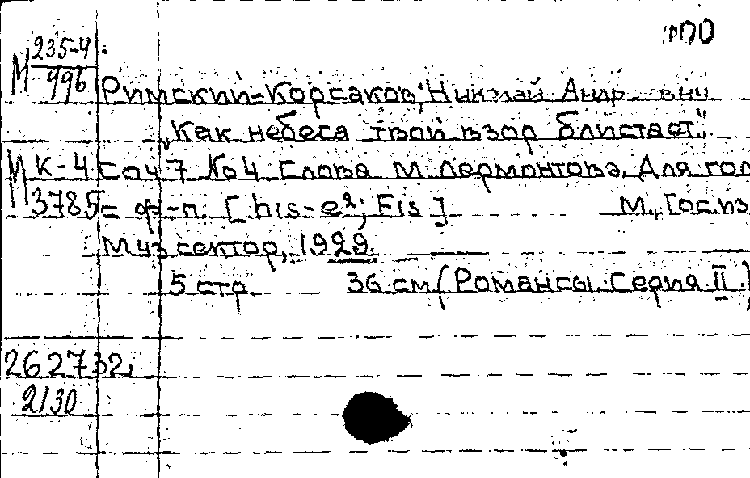 ФО
М 235-4
996
Римский-Корсаков, Николай Андр
"Как небеса твой взор блистает".
М К-4 Соч 7 № 4 Слова М. Лермонтова, Для гол
3785 с ф-п. [his-e²; Fis] М., Госиз
Муз сектор, 1929.
5 стр. 36 см (Романсы. Серия II.)
262732,
2130